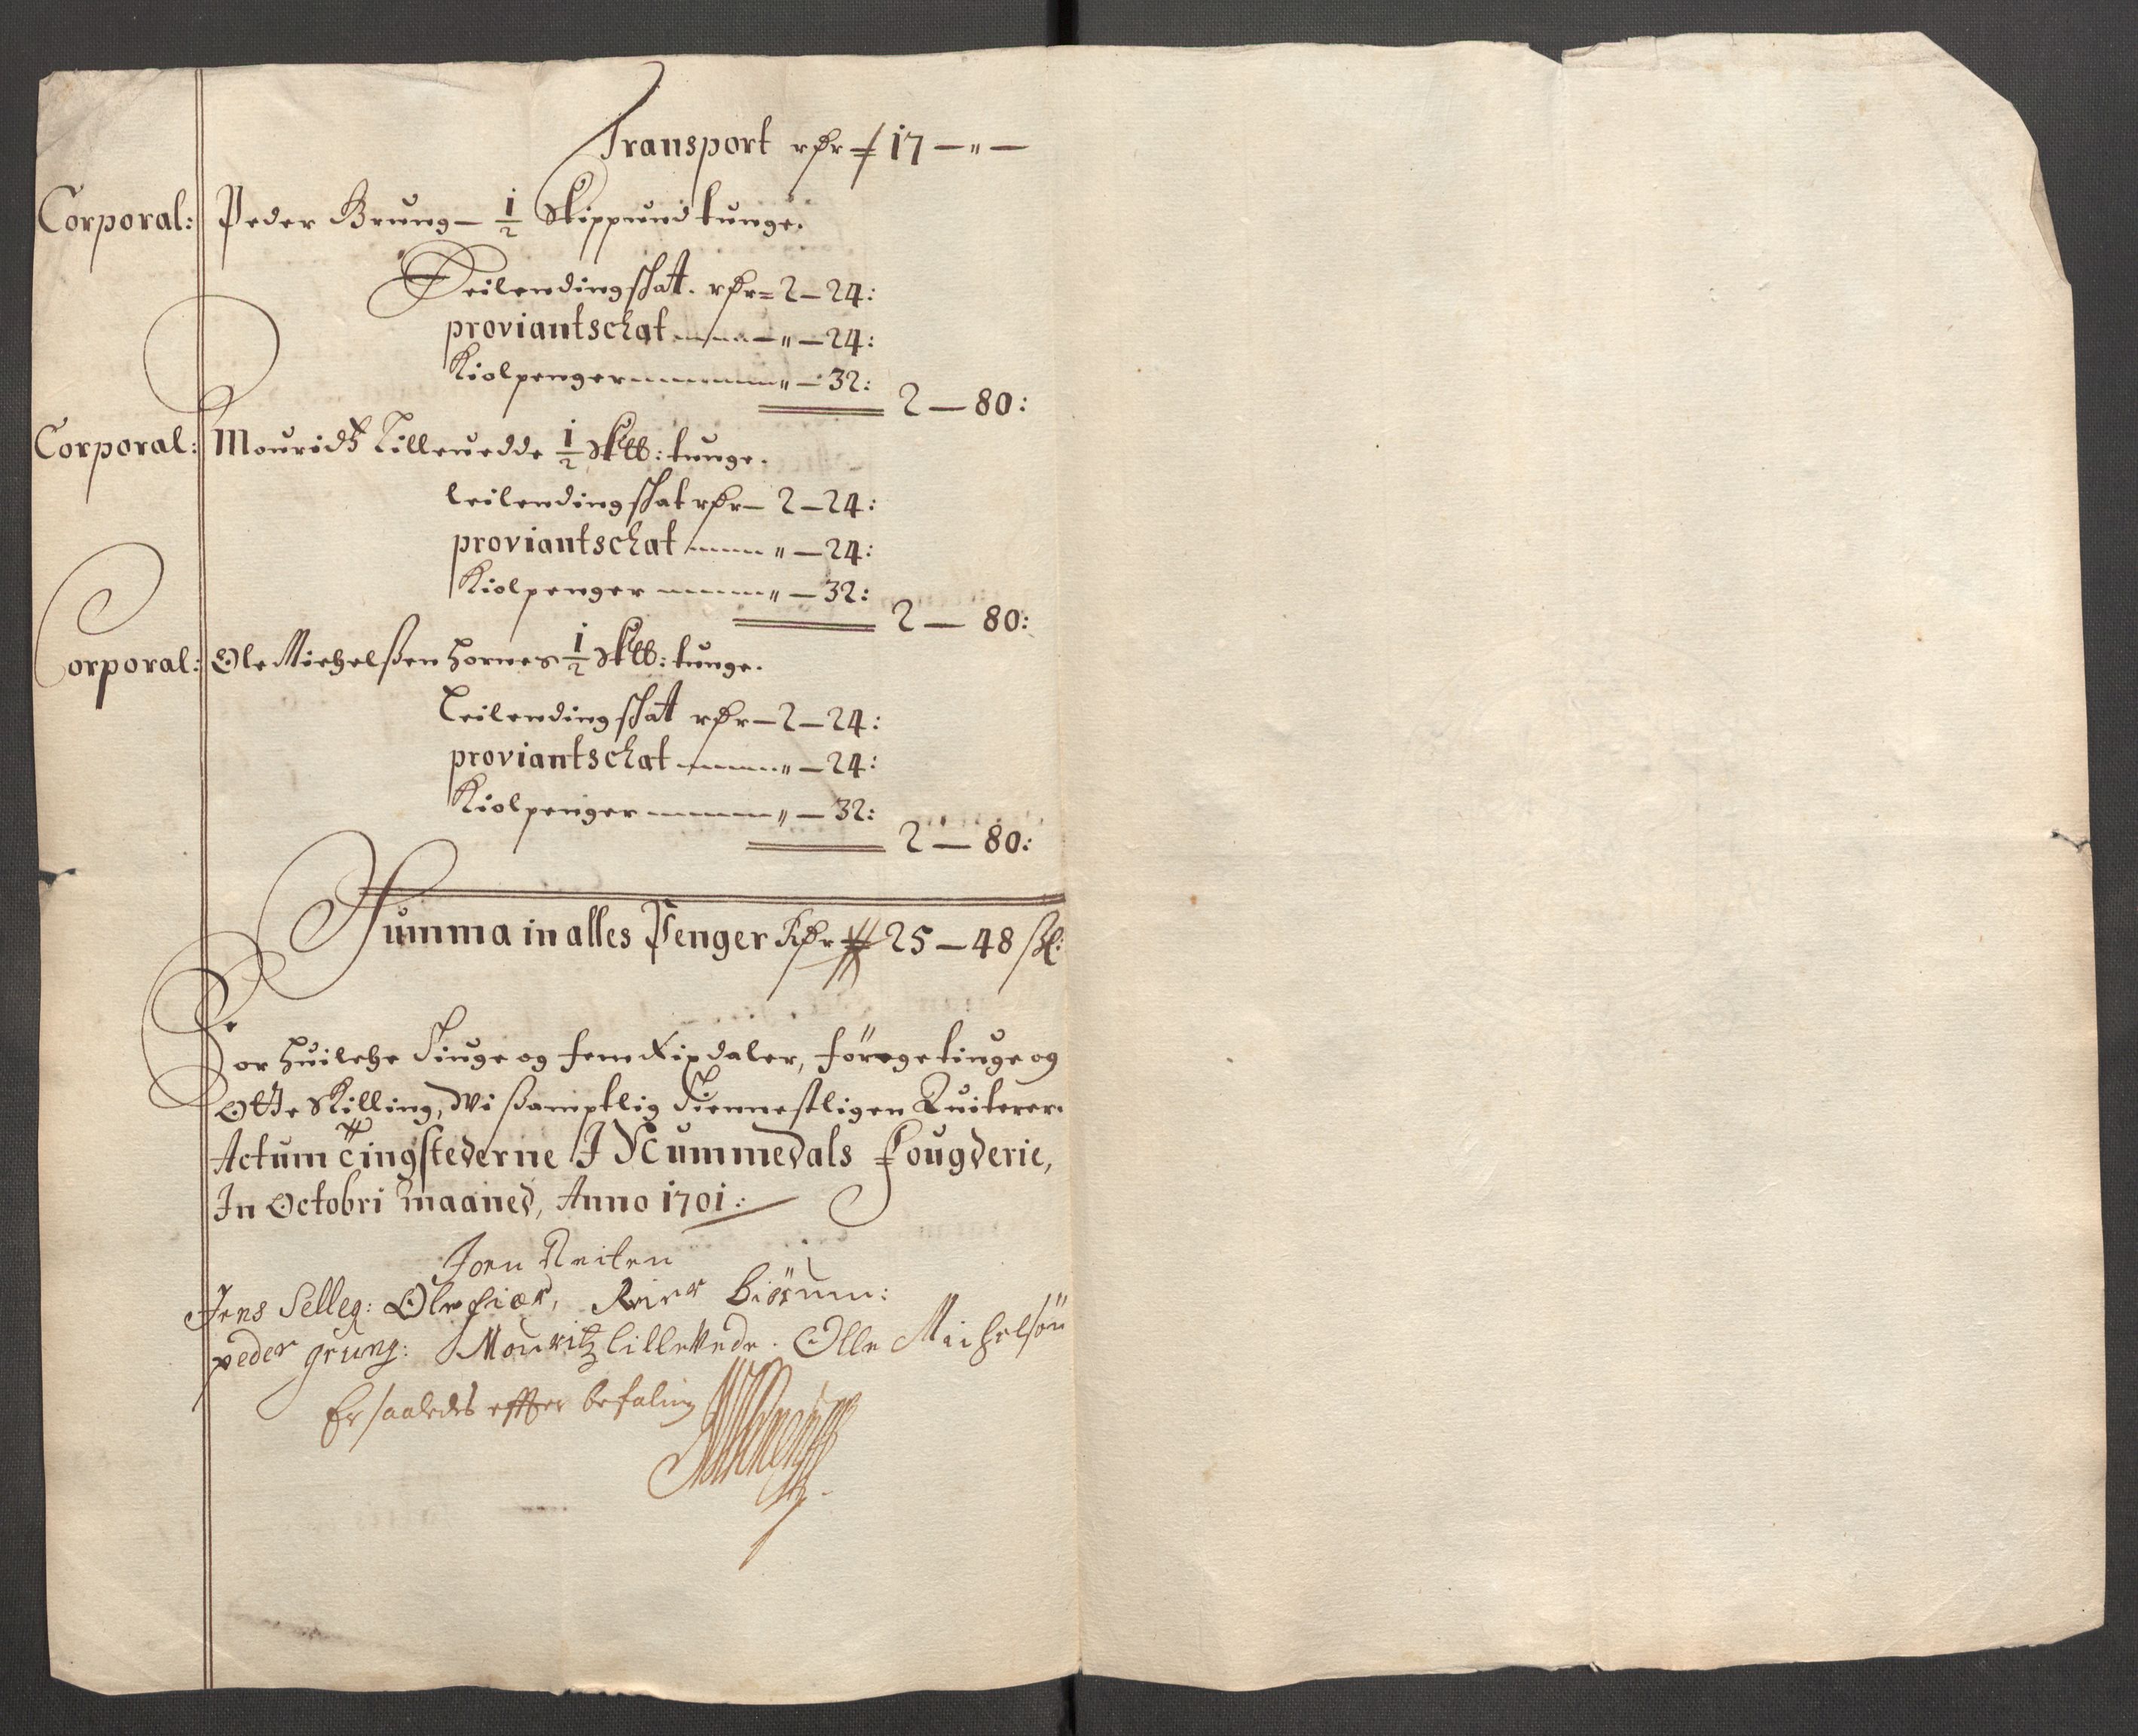 Transport rdr 17 — " —
Corporal: Peder Grung — 1/2 Skippund tunge.
Leilendingsskat. rdr = 2 — 24:
proviantschat — " — 24:
Kiolpenger — " — 32:
2 — 80:
Corporal: Mouridtz Lilleuedde 1/2 Sk℔: tunge.
Leilendingsskat rdr — 2 — 24:
proviantschat — " — 24:
Kiolpenger — " — 32:
2 — 80:
Corporal: Ole Michelssen Hornes 1/2 Sk℔: tunge.
Leilendingsskat rdr — 2 — 24:
proviantschat — " — 24:
Kiolpenger — " — 32:
2 — 80:
Summa in alles Penger Rdr 25 — 48 ß:
For huilche Tiuge og fem Rixdaler, förgetiuge og
Otte Skilling, Wi samptlig Tiennestligen Quiterer.
Actum Tingstederne I Nummedals Fougderie,
In Octobri Maaned, Anno 1701:
Joen Reiten
Jens Selleg: Ole Fiær, Reier Biörum:
peder grung: Mouritz lillevede. Olle Michelsön
Er saaledes effter befaling